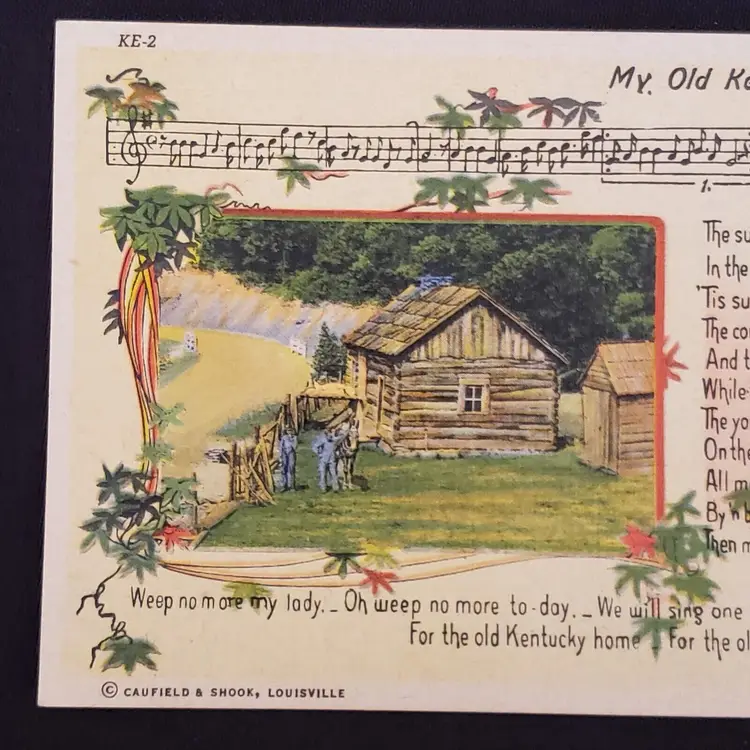 KE-2
My. Old Ke
1.
The su
In the
'Tis su
The co
And t
While-
The yo
On the
All m
By 'n b
Then m
Weep no more my lady. _ Oh weep no more to-day. _ We will sing one
For the old Kentucky home _ For the ol
© CAUFIELD & SHOOK, LOUISVILLE